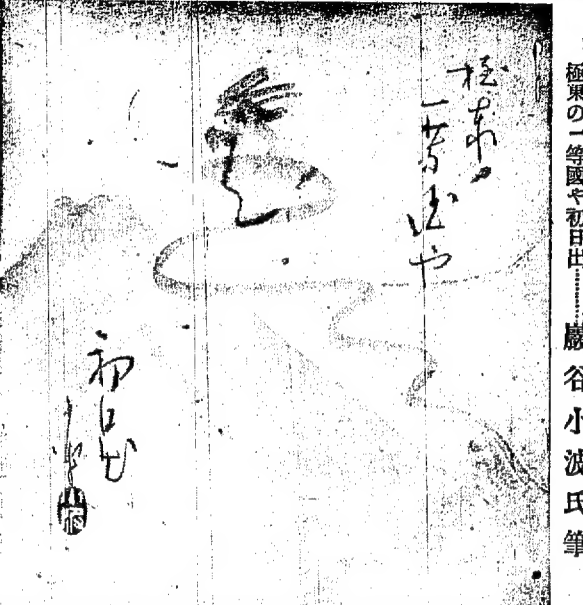 極東の一等國や初日出………巖谷小波氏筆
極東の
一等國や
初日出
小波